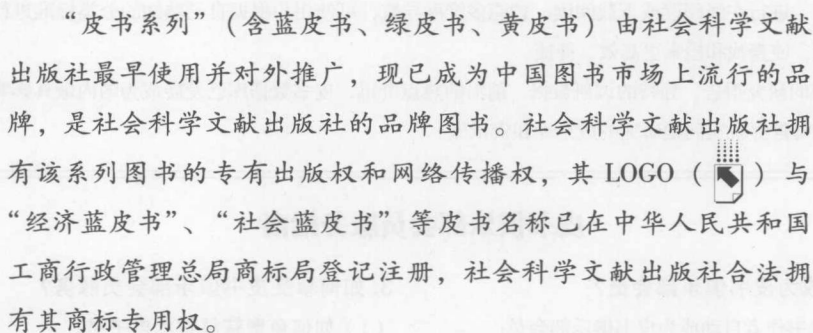 “皮书系列”（含蓝皮书、绿皮书、黄皮书）由社会科学文献
出版社最早使用并对外推广，现已成为中国图书市场上流行的品
牌，是社会科学文献出版社的品牌图书。社会科学文献出版社拥
有该系列图书的专有出版权和网络传播权，其 LOGO（）与
“经济蓝皮书”、“社会蓝皮书”等皮书名称已在中华人民共和国
工商行政管理总局商标局登记注册，社会科学文献出版社合法拥
有其商标专用权。